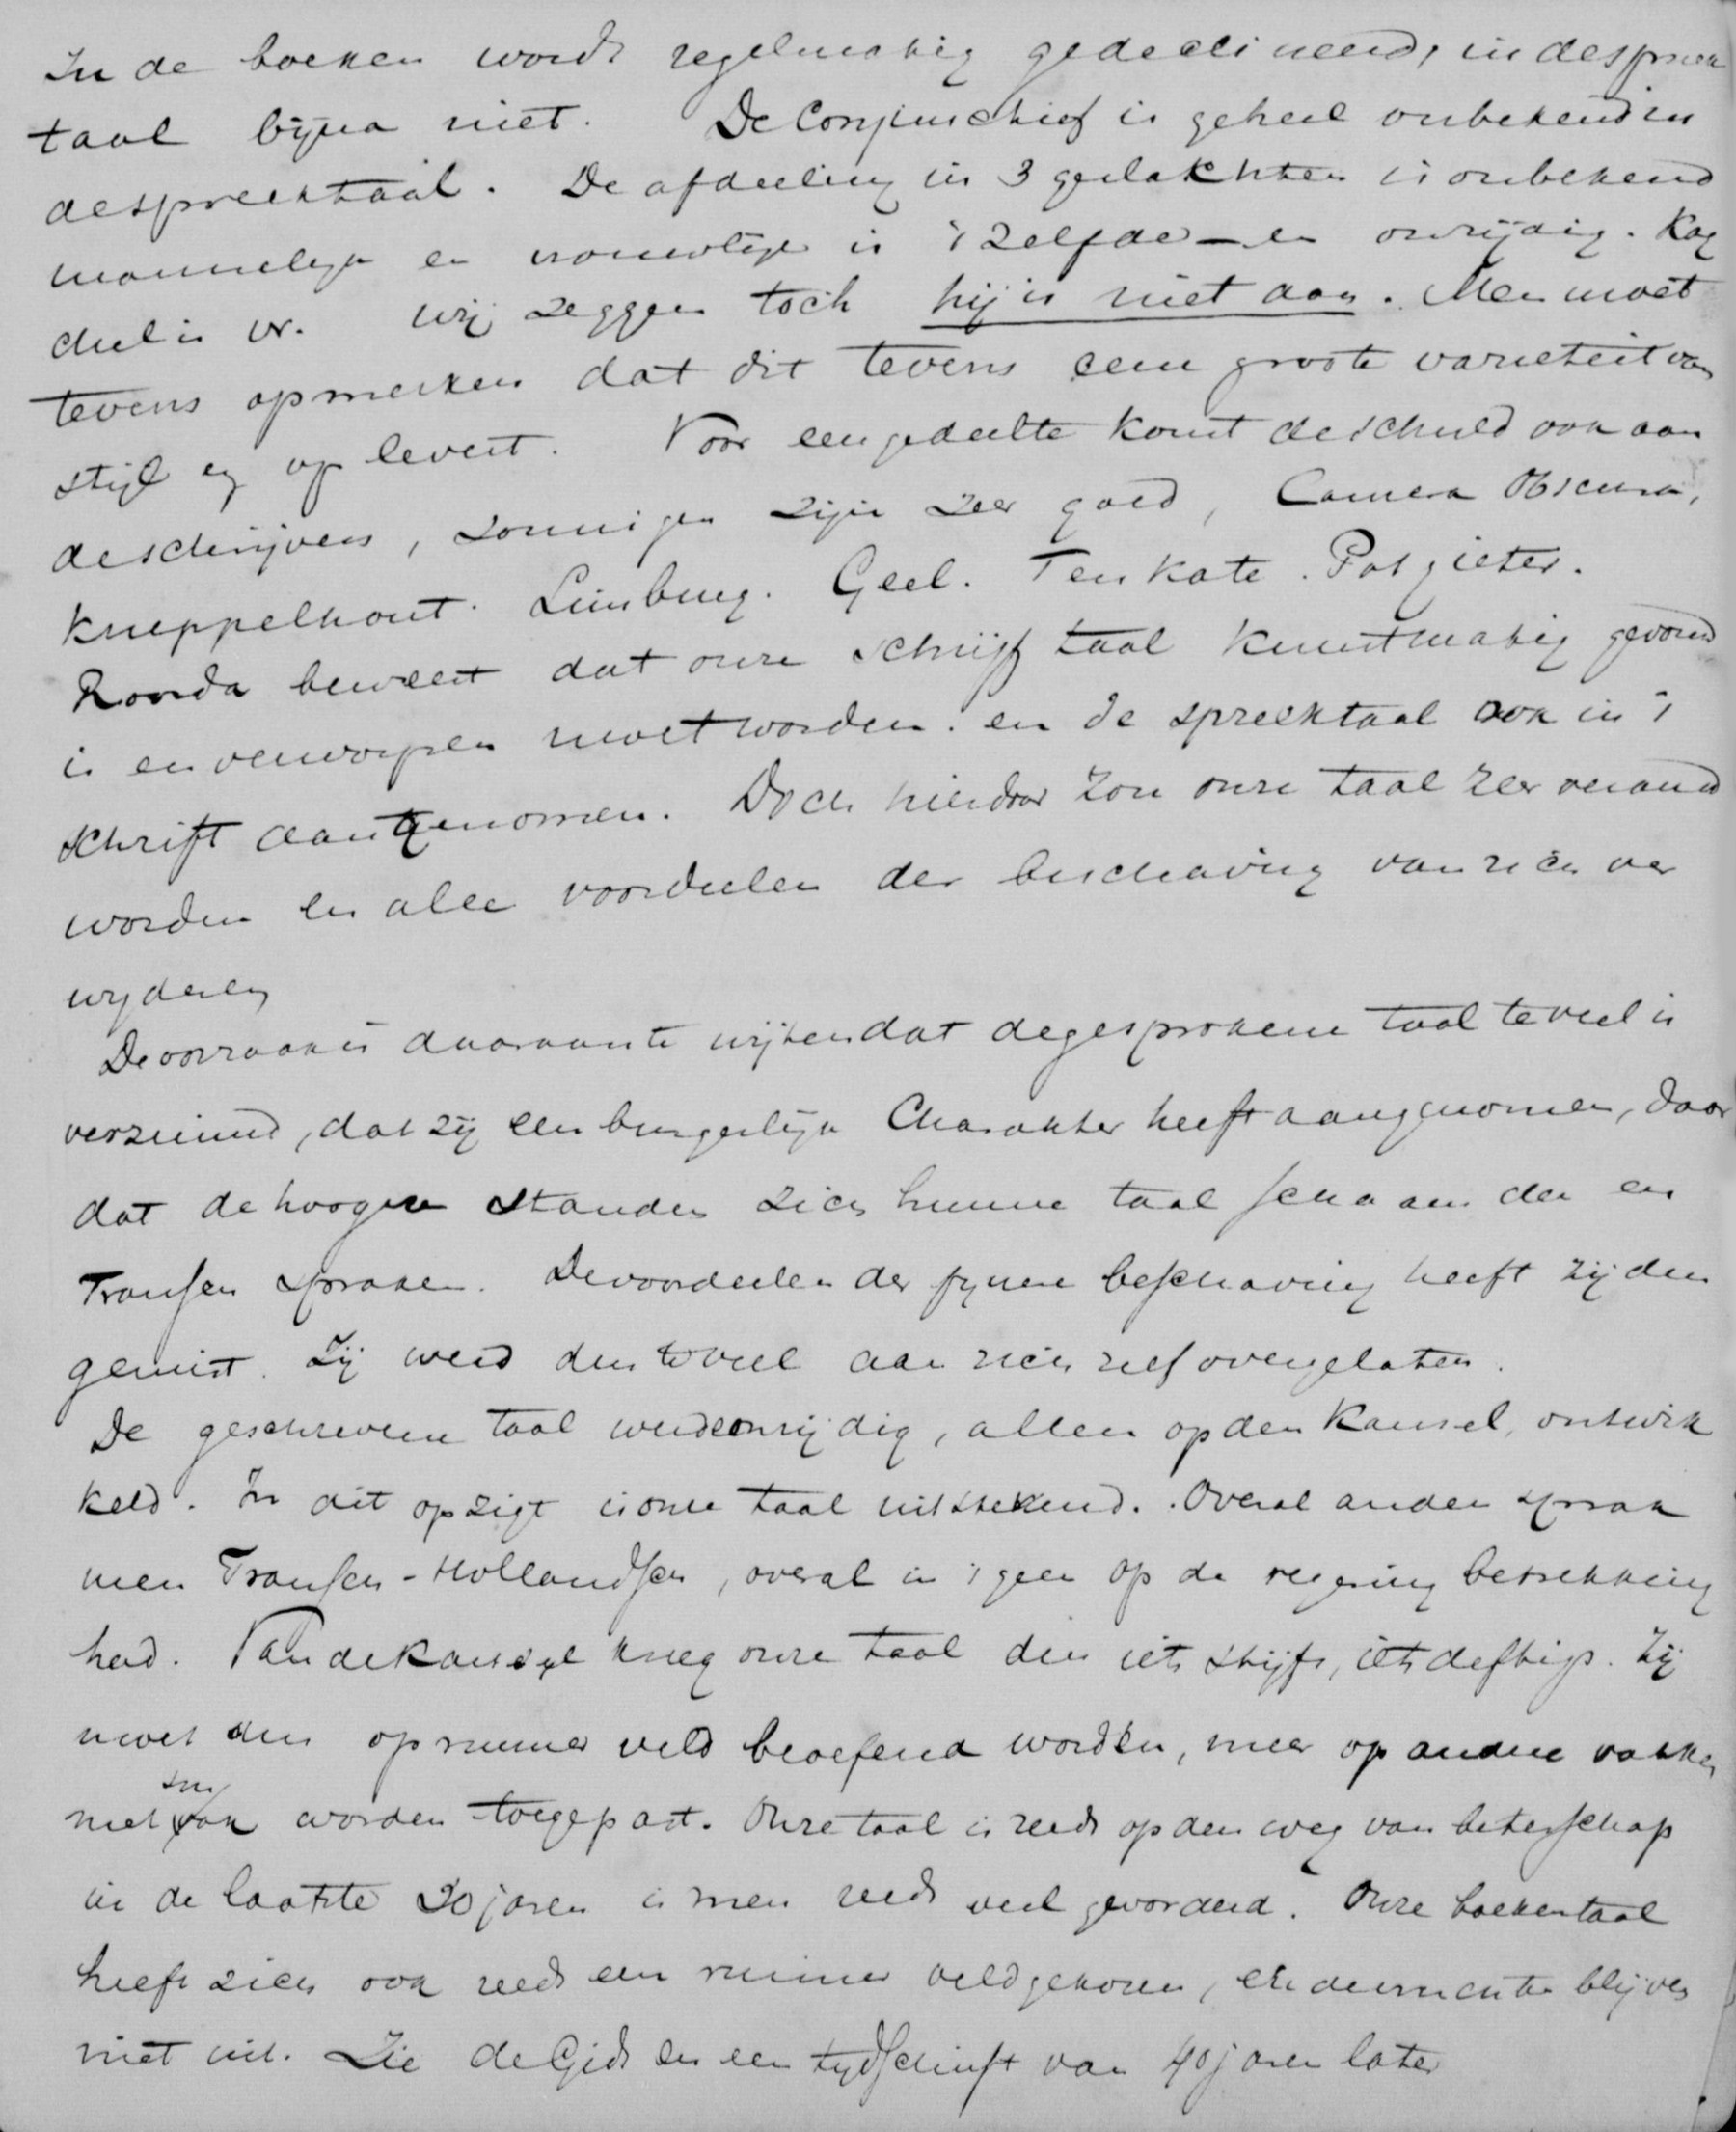 In de boeken wordt regelmatig gedeclineerd, in de spreek
taal bijna niet. De Conjunctief is geheel onbekend in
de spreektaal. De afdeeling in 3 geslachten is onbekend
mannelijk en vrouwelijk is 't zelfde – en onzijdig. Kag
chel is vr. wij zeggen toch hij is niet aan. Men moet
tevens opmerken dat dit tevens eene groote varieteit van
stijl op levert. Voor een gedeelte komt de schuld ook aan
de schrijvers, sommigen zijn zeer goed, Camera Obscura,
Kneppelhout. Limburg. Geel. Ten Kate. Potgieter.
Roorda beweert dat onze schrijftaal kunstmatig gevormd
is en verworpen moet worden. en de spreektaal ook in 't
schrift aangenomen. Doch hierdoor zou onze taal zeer verand
worden en alle voordeelen der beschaving van zich ver
wyderen
De oorzaak is daaraan te wijten dat de gesprokene taal te veel is
verzuimd, dat zij een burgerlijk Charakter heeft aangenomen, door
dat de hoogere standen zich hunne taal schaamden en
Fransch spraken. De voordeelen der fynere beschaving heeft zij dus
gemist. Zij werd dus te veel aan zich zelf overgelaten.
De geschrevene taal werd eenzijdig, alleen op den Kansel, ontwik
keld. In dit opzigt is onze taal uitstekend. Overal anders sprak
men Fransch-Hollandsch, overal in 't geen op de regering betrekking
had. Van de Kansel kreeg onze taal dus iets stijfs, iets deftigs. Zij
moet dus op ruimer veld beoefend worden, meer op andere vakken
moet ook worden toegepast. Onze taal is reeds op den weg van beterschap
in de laatste 20 jaren is men reeds veel gevorderd. Onze boekentaal
heeft zich ook reeds een ruimer veld gekozen, en de vruchten blijven
niet uit. Zie de Gids en een tydschrift van 40 jaren later